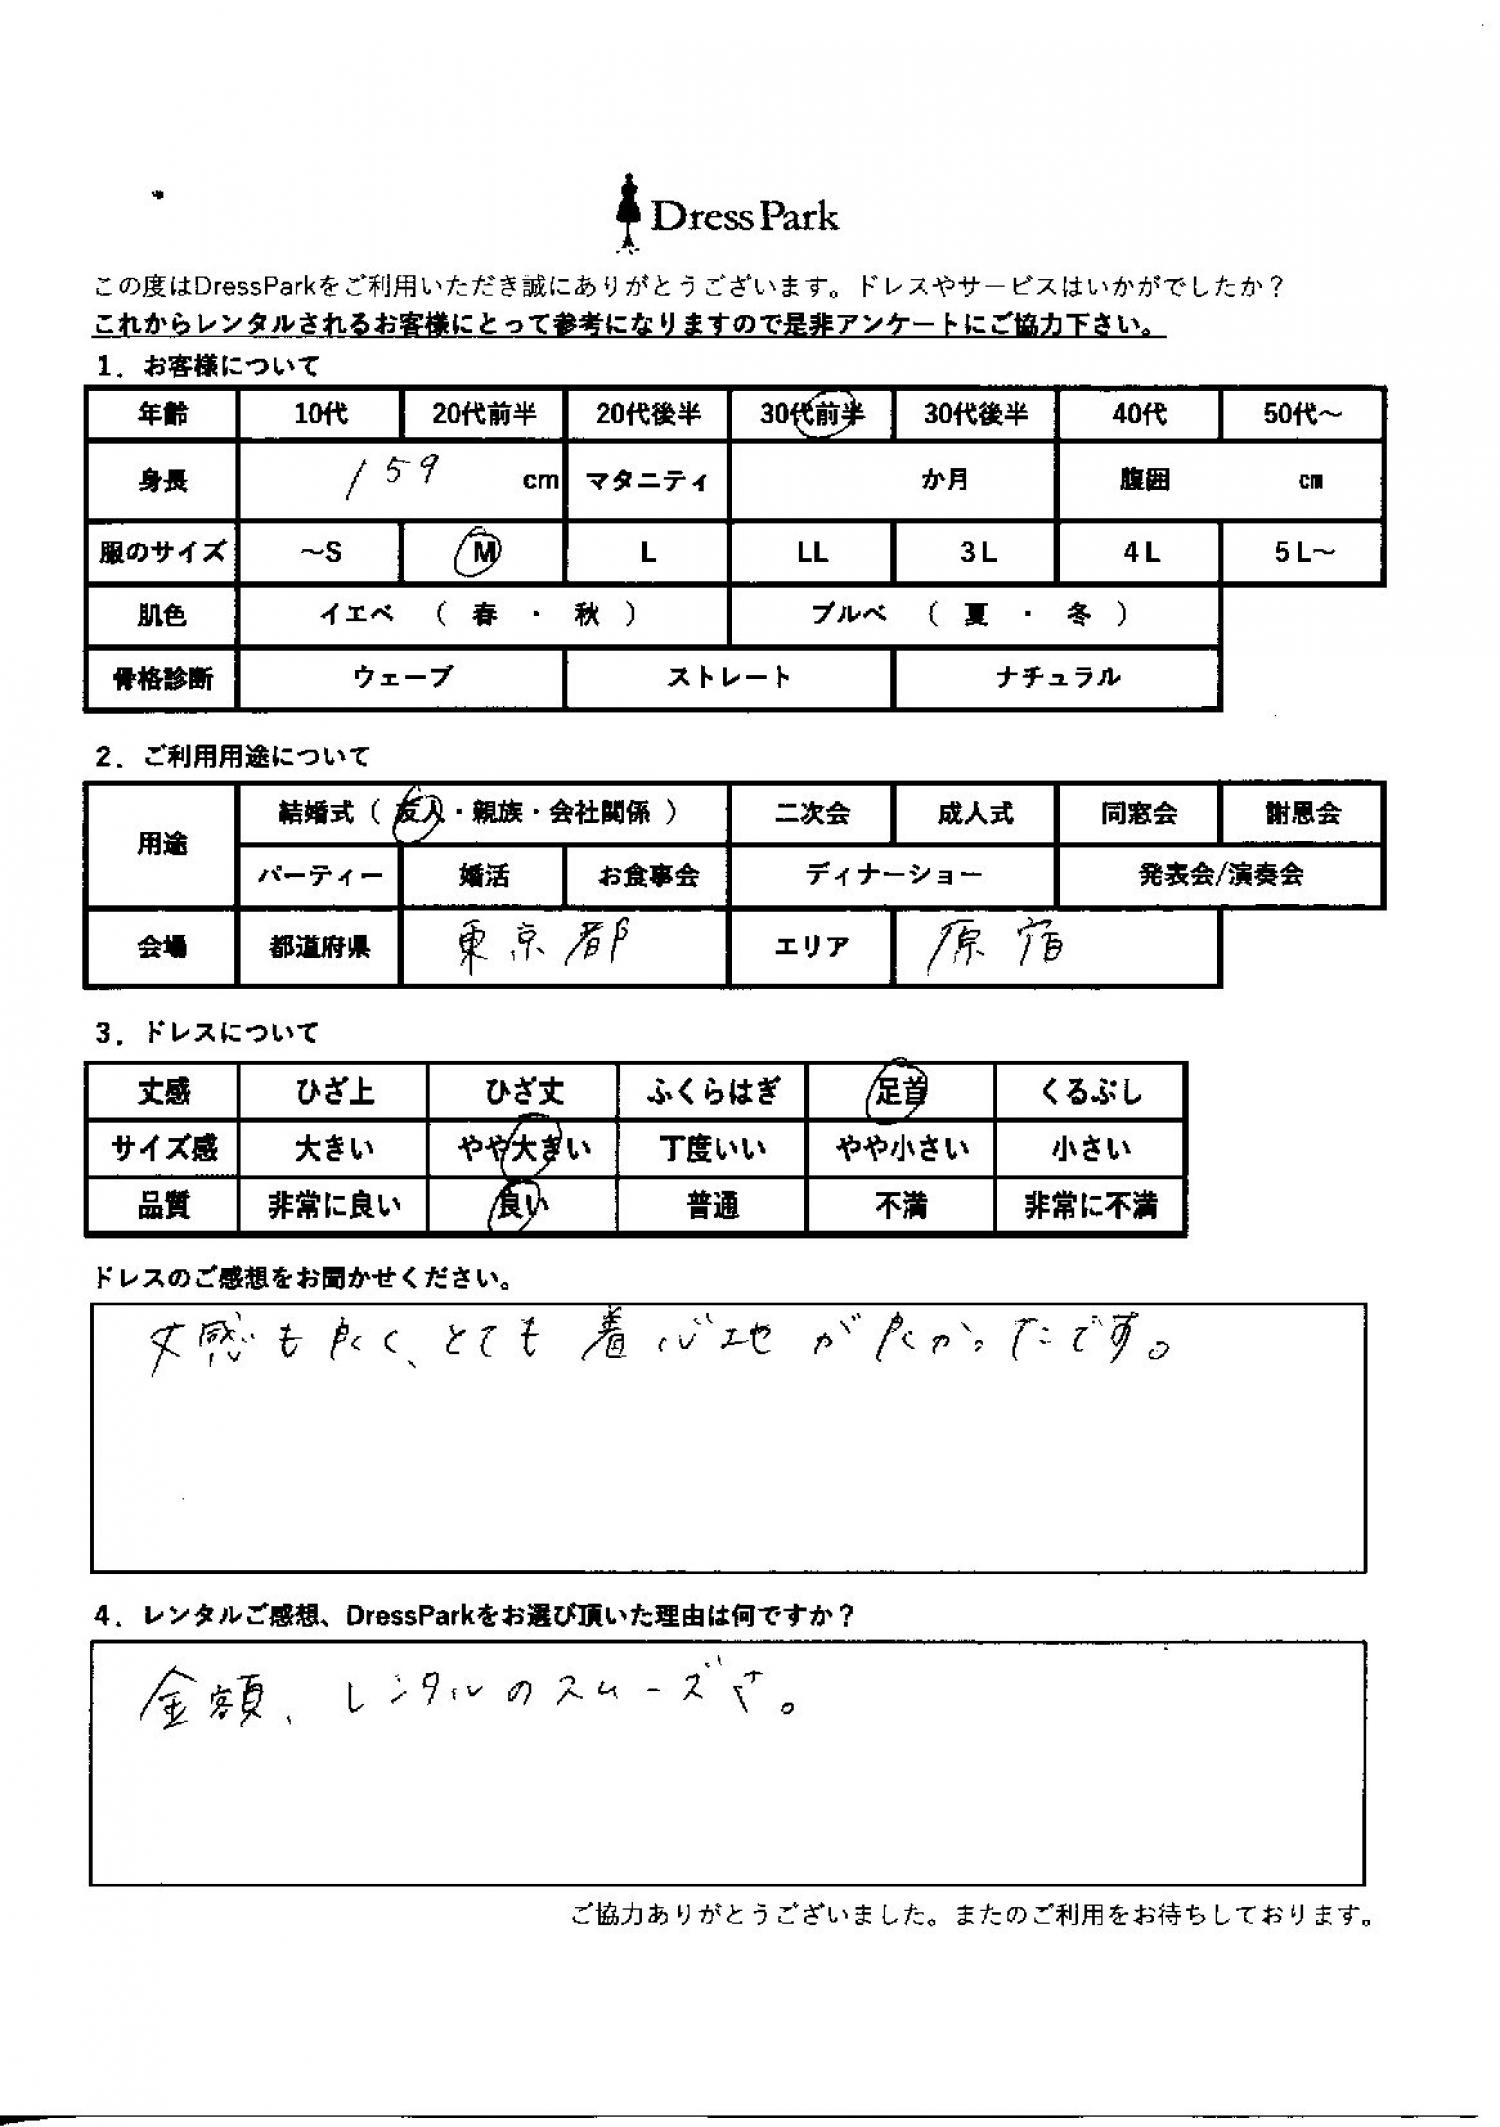 DressPark
この度はDressParkをご利用いただき誠にありがとうございます。ドレスやサービスはいかがでしたか？
これからレンタルされるお客様にとって参考になりますので是非アンケートにご協力下さい。
1．お客様について
年齢 10代 20代前半 20代後半 30代前半 30代後半 40代 50代～
身長 159 cm マタニティ か月 腹囲 cm
服のサイズ ～S M L LL 3L 4L 5L～
肌色 イエベ （ 春 ・ 秋 ） ブルベ （ 夏 ・ 冬 ）
骨格診断 ウェーブ ストレート ナチュラル
2．ご利用用途について
用途 結婚式（ 友人・親族・会社関係 ） 二次会 成人式 同窓会 謝恩会
パーティー 婚活 お食事会 ディナーショー 発表会/演奏会
会場 都道府県 東京都 エリア 原宿
3．ドレスについて
丈感 ひざ上 ひざ丈 ふくらはぎ 足首 くるぶし
サイズ感 大きい やや大きい 丁度いい やや小さい 小さい
品質 非常に良い 良い 普通 不満 非常に不満
ドレスのご感想をお聞かせください。
丈感も良く、とても着心地が良かったです。
4．レンタルご感想、DressParkをお選び頂いた理由は何ですか？
金額、レンタルのスムーズさ。
ご協力ありがとうございました。またのご利用をお待ちしております。